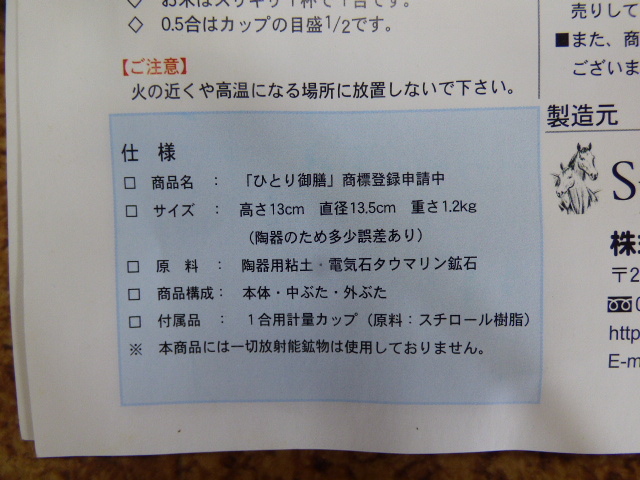 ◇ お米はスリキリ1杯で1合です。
◇ 0.5合はカップの目盛1/2です。
【ご注意】
火の近くや高温になる場所に放置しないで下さい。
仕 様
□ 商品名 : 「ひとり御膳」商標登録申請中
□ サイズ : 高さ13cm 直径13,5cm 重さ1.2kg
(陶器のため多少誤差あり)
□ 原 料 : 陶器用粘土・電気石タウマリン鉱石
□ 商品構成: 本体・中ぶた・外ぶた
□ 付属品 : 1合用計量カップ(原料:スチロール樹脂)
※ 本商品には一切放射能鉱物は使用しておりません。
売りして
■また、商
ございま
製造元
S
株式
〒2
http
E-m